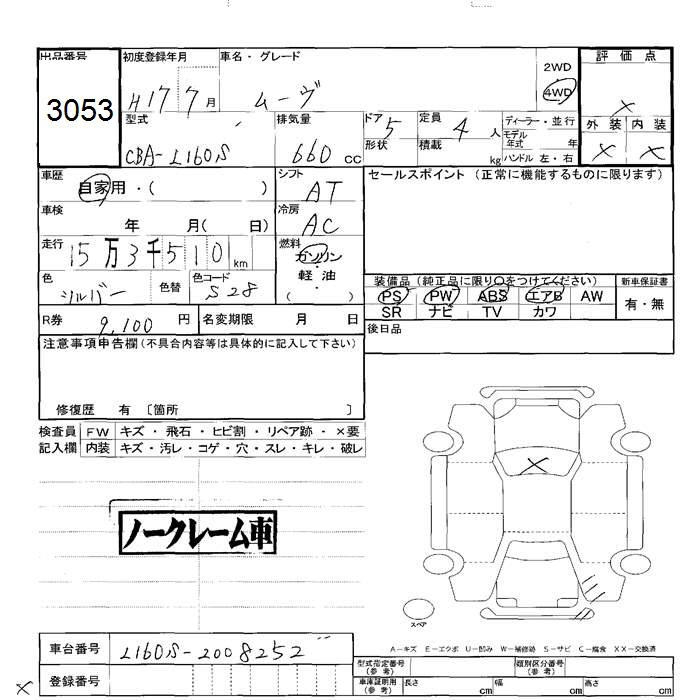 出品番号 初度登録年月 車名・グレード 2WD 評価点
3053 H17 7月 ムーヴ 4WD ×
型式 排気量 ドア 5 定員 4人 ディーラー・並行 外装 内装
CBA-L160S 660cc 形状 積載 kg モデル年式 年 × ×
ハンドル 左・右
車歴 自家用・( ) シフト AT セールスポイント (正常に機能するものに限ります)
車検 年 月( 日) 冷房 AC
走行 15万3千510km 燃料 ガソリン
・
色 シルバー 色替 色コード S28 軽油 装備品(純正品に限り○をつけてください) 新車保証書
( ) PS PW ABS エアB AW 有・無
R券 9,100円 名変期限 月 日 SR ナビ TV カワ
注意事項申告欄(不具合内容等は具体的に記入して下さい) 後日品
修復歴 有 〔箇所 〕
検査員 FW キズ・飛石・ヒビ割・リペア跡・×要
記入欄 内装 キズ・汚レ・コゲ・穴・スレ・キレ・破レ
×
ノークレーム車
スペア
A-キズ E-エクボ U-凹み W-補修跡 S-サビ C-腐食 XX-交換済
車台番号 L160S-2008252 型式指定番号(参考) 類別区分番号(参考)
× 登録番号 車庫証明用(参考) 長さ cm 幅 cm 高さ cm